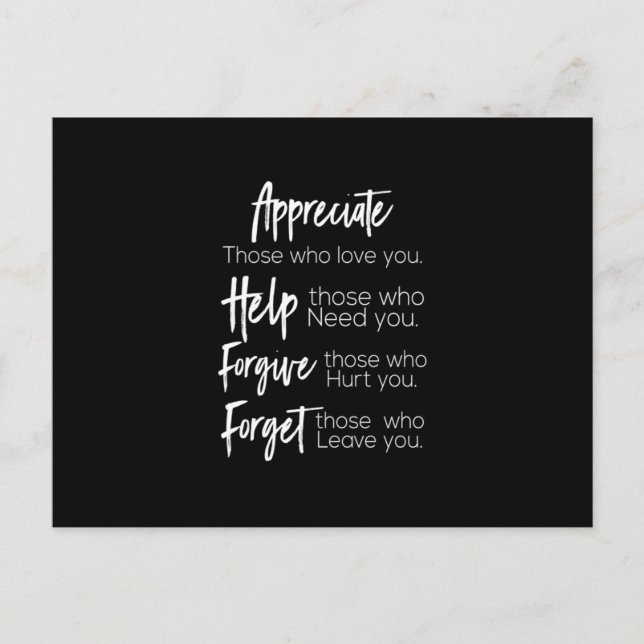 Appreciate
Those who love you.
Help those who
Need you.
Forgive those who
Hurt you.
Forget those who
Leave you.